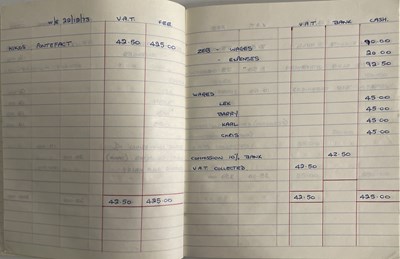 w/e V.A.T. FEE
42.50 425.00
42.50 425.00
V.A.T BANK CASH.
- WAGES 90.00
- EXPENSES 20.00
92.50
WAGES
LEE 45.00
BARRY 45.00
KARL 45.00
CHRIS 45.00
COMMISSION 10% BANK 42.50
V.A.T COLLECTED 42.50
42.50 425.00